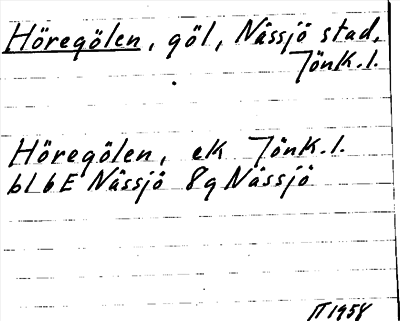 Höregölen, göl, Nässjö stad,
Jönk. l.
Höregölen, ek Jönk. l.
bl 6E Nässjö 8g Nässjö
1958